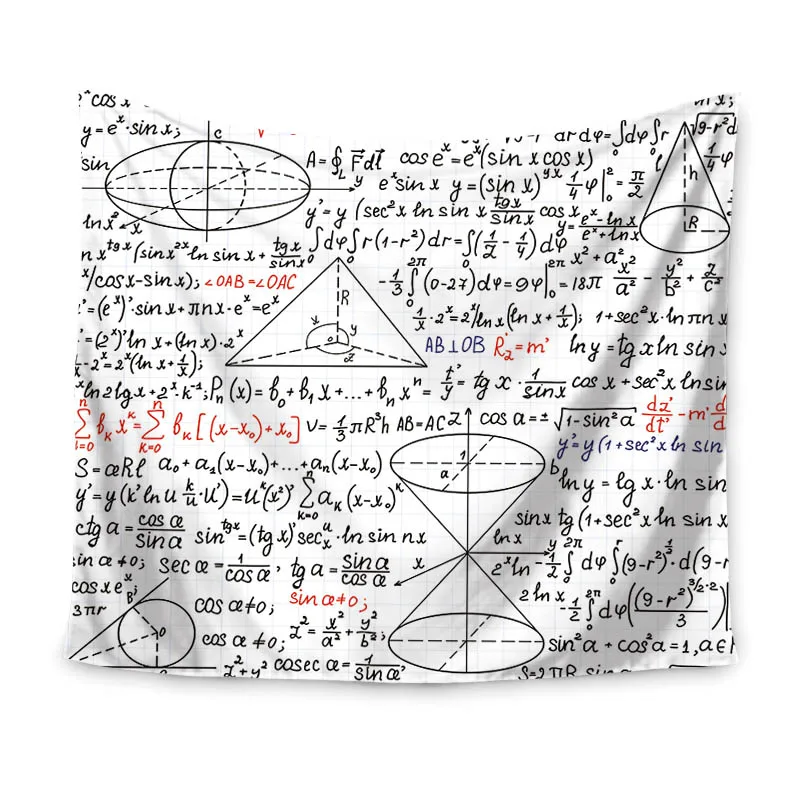 cos x
y = e^x · sin x;
c
A = ∮_L F⃗ dl⃗
cos e^x = e^x (sin x cos x)
dφ = ∫dφ∫r
√9-r²d
sin
y
e^x sin x y = (sin x)^yx 1/4 φ|₀ = π/2
1/4 φ
h
R
l
ln x²
x
y' = y (sec²x ln sin x tgx/sinx cos x
y = e^x - ln x / e^x + ln x
n x^tgx (sin x^2x ln sin x + tgx/sinx
∫₀dφ∫₀r(1-r²)dr = ∫₀(1/2 - 1/4)dφ
x² + a²
x/cos x - sin x);
∠OAB = ∠OAC
-1/3 ∫₀^2π (0-27)dφ = 9φ|₀^2π = 18π
x²/a² - y²/b² + z/c²
' = (e^x)' · sin x + πnx · e^x = e^x
R
x
o
y
z
1/x · 2^x = 2^x/ln x (ln x + 1/x); 1 + sec²x · ln πn x
' = (2^x)' ln x + (ln x) · 2^x
AB⊥OB
R'₂ = m'
ln y = tg x ln sin x
x · 2^x = 2^x (ln x + 1/x);
x ln 2 lg x + 2^x · k⁻¹; Pₙ(x) = b₀ + b₁x + ... + bₙxⁿ
t'/y = tg x · 1/sinx cos x + sec²x ln sin
∑ b_k x^k = ∑_{k=0}^n b_k [(x-x₀)+x₀]
V = 1/3 πR³h AB = AC
z
cos a = ± √1-sin²a
dz'/dt' - m' d
1
a
b
y' = y (1 + sec²x ln sin
S = æRl a₀ + a₁(x-x₀) + ... + aₙ(x-x₀)
ln y = lg x · ln sin
y' = y (k' ln u k/u · u') = u^k (x²)' ∑_{k=0}^n a_k (x-x₀)^k
ctg a = cos æ/sin a
sin^tgx = (tg x)' sec_x^u · ln sin nx
sinx tg (1 + sec²x ln sin x
ln x
y
sin a ≠ 0; sec æ = 1/cos æ, tg a = sin a/cos æ
x
2^x ln
-1/2 ∫₀^2π dφ ∫₀^r (9-r²)^½ · d(9-r
cos x e^x;
B
3πr
O
cos æ ≠ 0;
sin æ ≠ 0;
2 ln x
-1/2 ∫₀^2π dφ((9-r²)^3/2·2 / 3)
cos æ ≠ 0; z² = x²/a² + y²/b²;
sin²a + cos²a = 1, a∈
z² + y² cosec æ = 1/sin æ,
S = 2πR sin